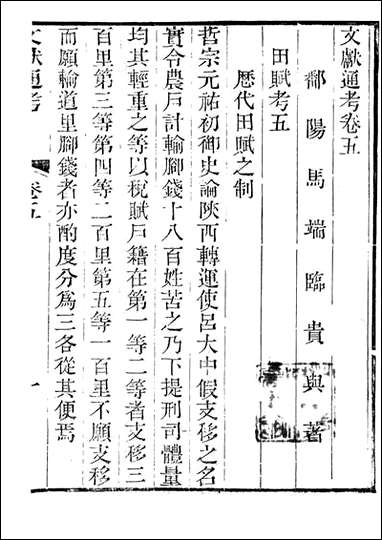 文獻通考卷五
鄱陽馬端臨貴與著
田賦考五
歷代田賦之制
哲宗元祐初御史論陝西轉運使呂大中假支移之名
實令農戶計輸腳錢十八百姓苦之乃下提刑司體量
均其輕重之等以稅賦戶籍在第一等二等者支移三
百里第三等第四等二百里第五等一百里不願支移
而願輸道里腳錢者亦酌度分為三各從其便焉
文獻通考
卷五
一